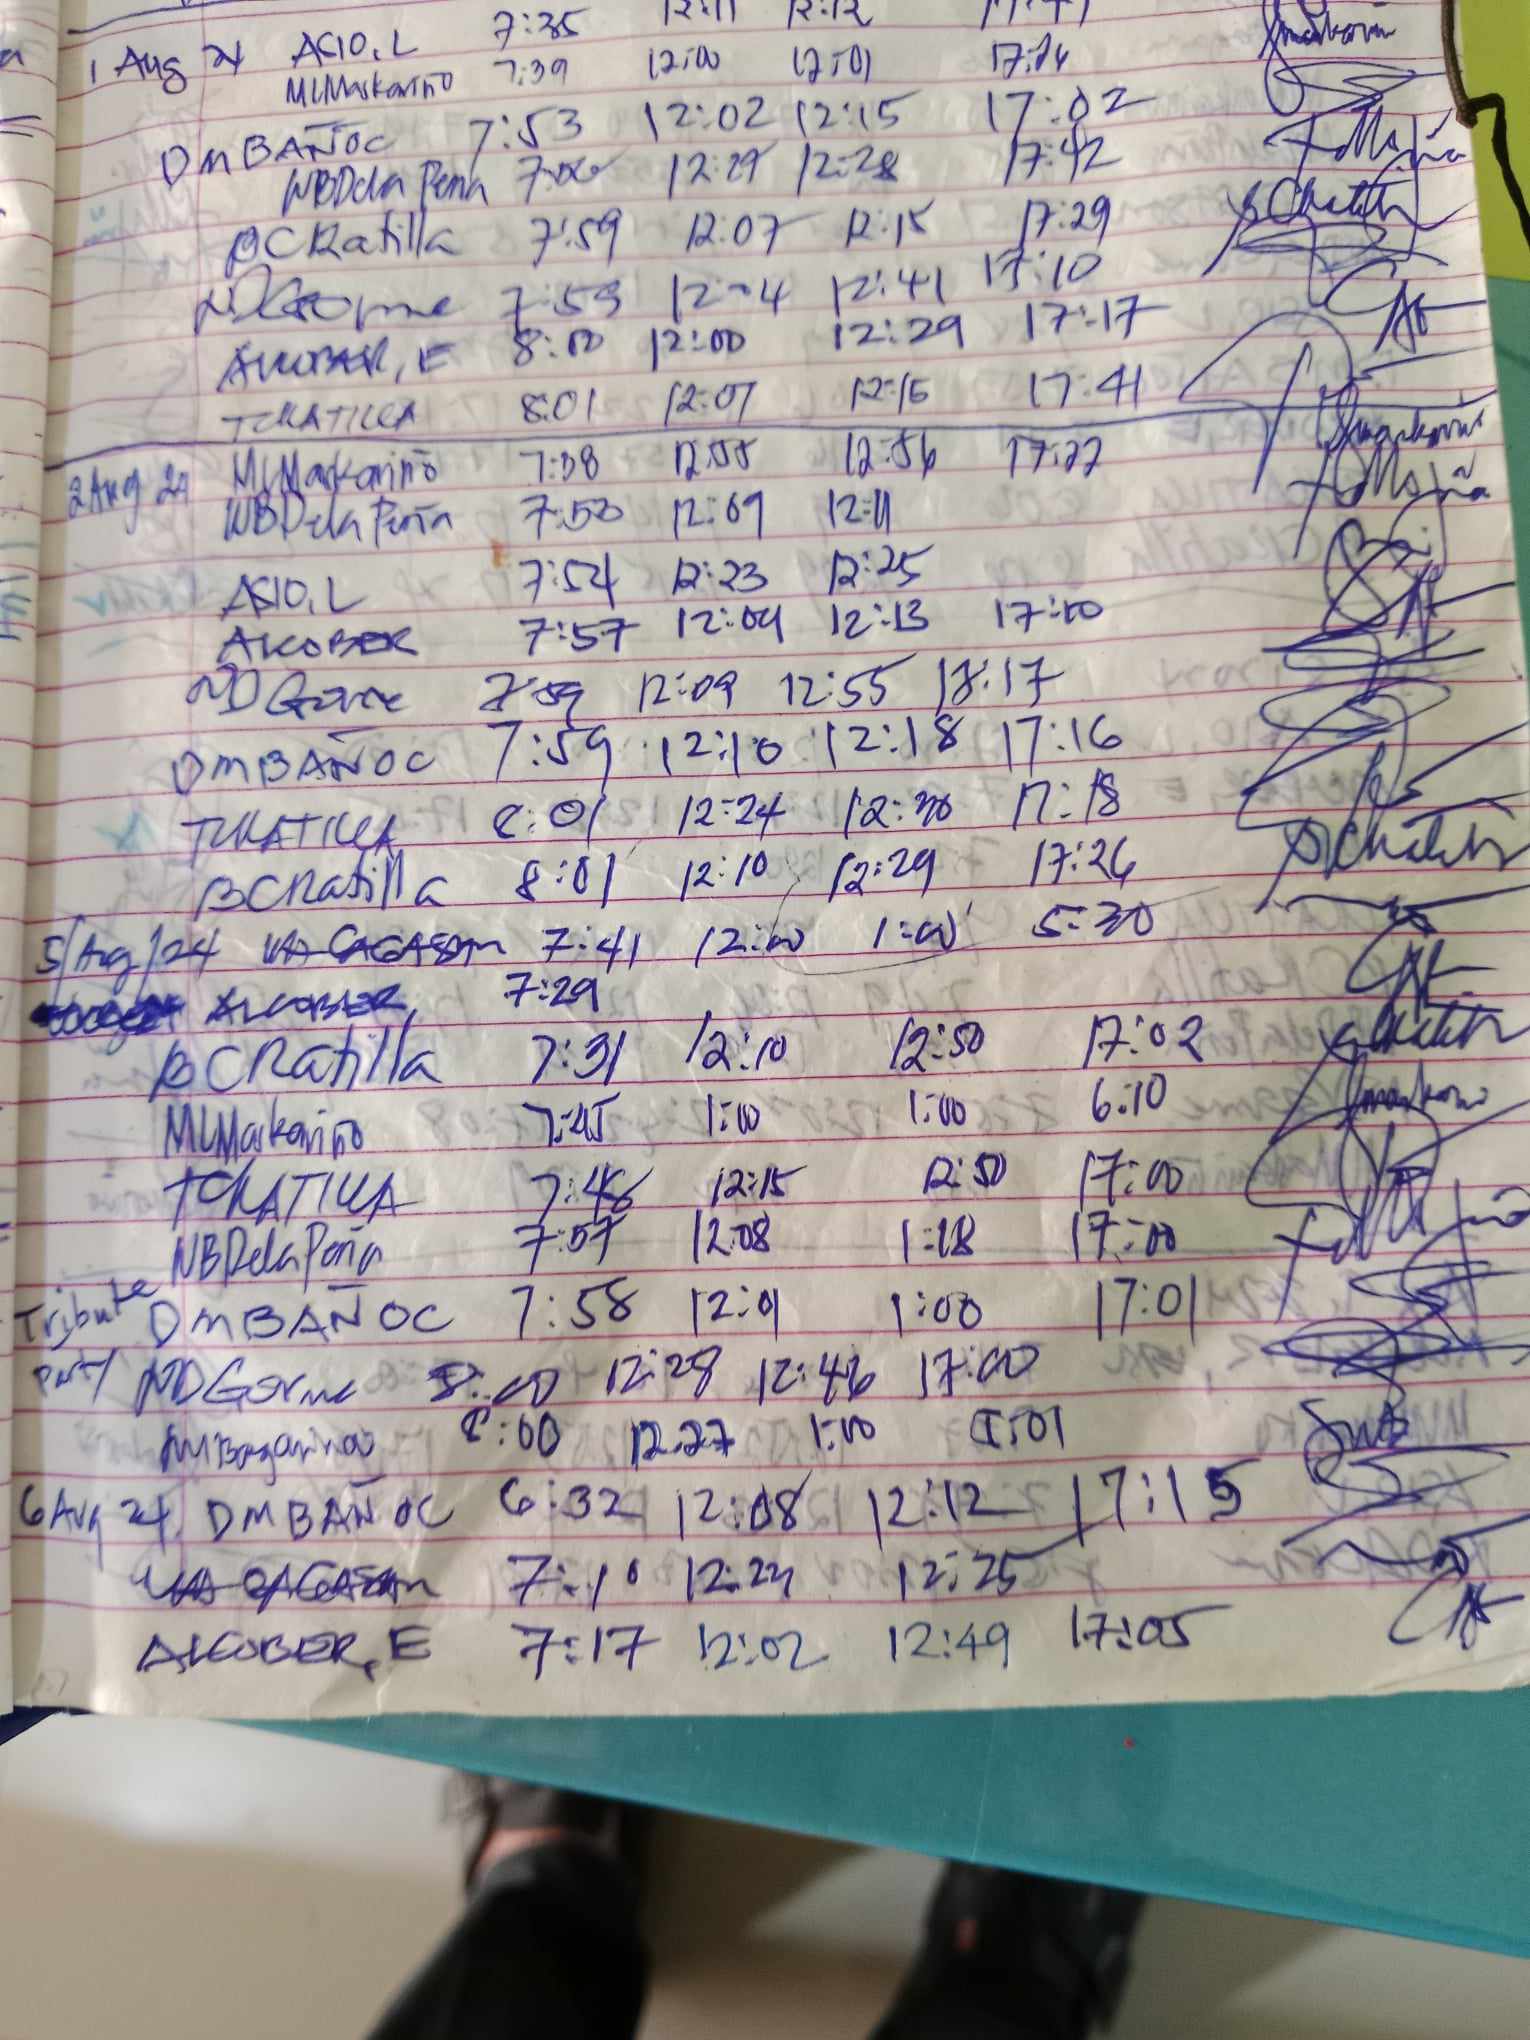 1 Aug 24 ASIO, L 7:35 12:11 12:12 17:41
MLMaskariño 7:39 12:00 12:01 17:24
DMBAÑOC 7:53 12:02 12:15 17:02
NBDela Peña 12:27 12:28 17:42
BCRatilla 7:59 12:07 12:15 17:29
NDGorme 7:59 12:41 17:10
ALCOBER, E 8:00 12:00 12:29 17:17
TCRATILLA 8:01 12:07 12:15 17:41
2 Aug 24 MLMaskariño 7:38 12:55 12:56 17:22
NBDela Peña 7:50 12:09 12:11
ASIO, L 7:54 12:23 12:25
ALCOBER 7:57 12:09 12:13 17:00
NDGorme 7:59 12:09 12:55 17:17
DMBAÑOC 7:59 12:10 12:18 17:16
TCRATILLA 8:01 12:24 12:30 17:18
BCRatilla 8:01 12:10 12:29 17:26
5/Aug/24 CAGASAN 7:41 12:00 1:00 5:30
ALCOBER 7:29
BCRatilla 7:31 12:10 12:50 17:02
MLMaskariño 7:45 1:00 1:00 6:10
TCRATILLA 7:48 12:15 12:50 17:00
NBDela Peña 7:57 12:08 1:18 17:00
Tribute DMBAÑOC 7:58 12:01 1:00 17:01
Party NDGorme 8:00 12:28 12:46 17:00
8:00 12:27 1:00 5:01
6 Aug 24 DMBAÑOC 6:32 12:08 12:12 17:15
CAGASAN 7:10 12:24 12:25
ALCOBER, E 7:17 12:02 12:49 17:05